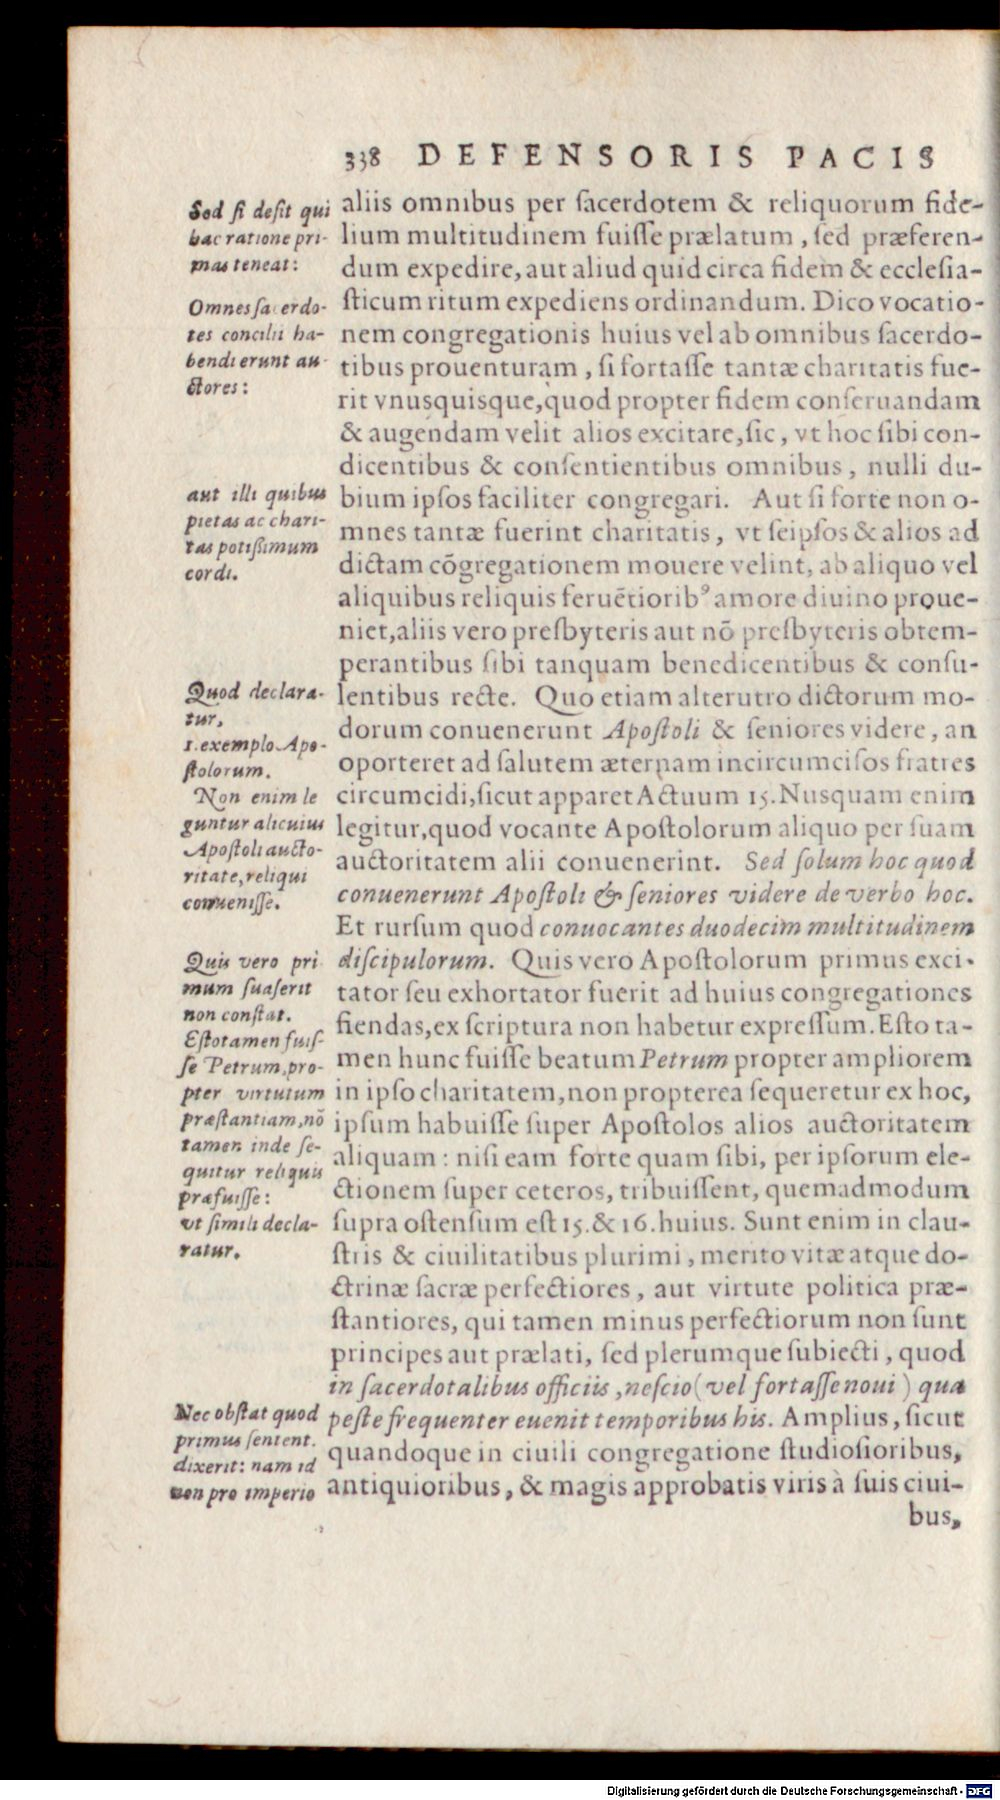 338 DEFENSORIS PACIS
Sed ſi deſit qui
hac ratione pri-
mas teneat:
Omnes ſacerdo-
tes concilii ha-
bendi erunt au-
ctores:
aut illi quibus
pietas ac chari-
tas potiſsimum
cordi.
Quod declara-
tur,
1. exemplo Apo-
ſtolorum.
Non enim le
guntur alicuius
Apoſtoli aucto-
ritate, reliqui
conueniſſe.
Quis vero pri
mum ſuaſerit
non conſtat.
Eſto tamen fuiſ-
ſe Petrum, pro-
pter virtutum
præſtantiam, nõ
tamen inde ſe-
quitur reliquis
præfuiſſe:
vt ſimili decla-
ratur.
Nec obſtat quod
primus ſentent.
dixerit: nam id
non pro imperio
aliis omnibus per ſacerdotem & reliquorum fide-
lium multitudinem fuiſſe prælatum, ſed præferen-
dum expedire, aut aliud quid circa fidem & eccleſia-
ſticum ritum expediens ordinandum. Dico vocatio-
nem congregationis huius vel ab omnibus ſacerdo-
tibus prouenturam, ſi fortaſſe tantæ charitatis fue-
rit vnusquisque, quod propter fidem conſeruandam
& augendam velit alios excitare, ſic, vt hoc ſibi con-
dicentibus & conſentientibus omnibus, nulli du-
bium ipſos faciliter congregari. Aut ſi forte non o-
mnes tantæ fuerint charitatis, vt ſeipſos & alios ad
dictam cõgregationem mouere velint, ab aliquo vel
aliquibus reliquis feruẽtioribꝰ amore diuino proue-
niet, aliis vero preſbyteris aut nõ preſbyteris obtem-
perantibus ſibi tanquam benedicentibus & conſu-
lentibus recte. Quo etiam alterutro dictorum mo-
dorum conuenerunt Apoſtoli & ſeniores videre, an
oporteret ad ſalutem æternam incircumciſos fratres
circumcidi, ſicut apparet Actuum 15. Nusquam enim
legitur, quod vocante Apoſtolorum aliquo per ſuam
auctoritatem alii conuenerint. Sed ſolum hoc quod
conuenerunt Apoſtoli & ſeniores videre de verbo hoc.
Et rurſum quod conuocantes duodecim multitudinem
diſcipulorum. Quis vero Apoſtolorum primus exci-
tator ſeu exhortator fuerit ad huius congregationes
fiendas, ex ſcriptura non habetur expreſſum. Eſto ta-
men hunc fuiſſe beatum Petrum propter ampliorem
in ipſo charitatem, non propterea ſequeretur ex hoc,
ipſum habuiſſe ſuper Apoſtolos alios auctoritatem
aliquam: niſi eam forte quam ſibi, per ipſorum ele-
ctionem ſuper ceteros, tribuiſſent, quemadmodum
ſupra oſtenſum eſt 15. & 16. huius. Sunt enim in clau-
ſtris & ciuilitatibus plurimi, merito vitæ atque do-
ctrinæ ſacræ perfectiores, aut virtute politica præ-
ſtantiores, qui tamen minus perfectiorum non ſunt
principes aut prælati, ſed plerumque ſubiecti, quod
in ſacerdotalibus officiis, neſcio (vel fortaſſe noui) qua
peſte frequenter euenit temporibus his. Amplius, ſicut
quandoque in ciuili congregatione ſtudioſioribus,
antiquioribus, & magis approbatis viris à ſuis ciui-
bus,
Digitalisierung gefördert durch die Deutsche Forschungsgemeinschaft - DFG